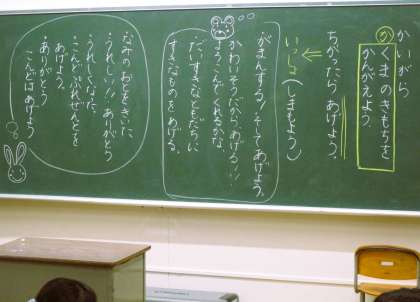 かいがら
か くまのきもちを
かんがえよう。
ちがったら あげよう。
いっしょ
(しまもよう)
がまんする!そしてあげよう。
かわいそうだから、あげる!!
よろこんでくれるかな。
だいすきなともだちに
すきなものをあげる。
なみのおとをきいた。
・うれしい!!ありがとう
うれしくなった。
・こんどぷれぜんとを
あげよう。
・ありがとう
こんどはあげよう